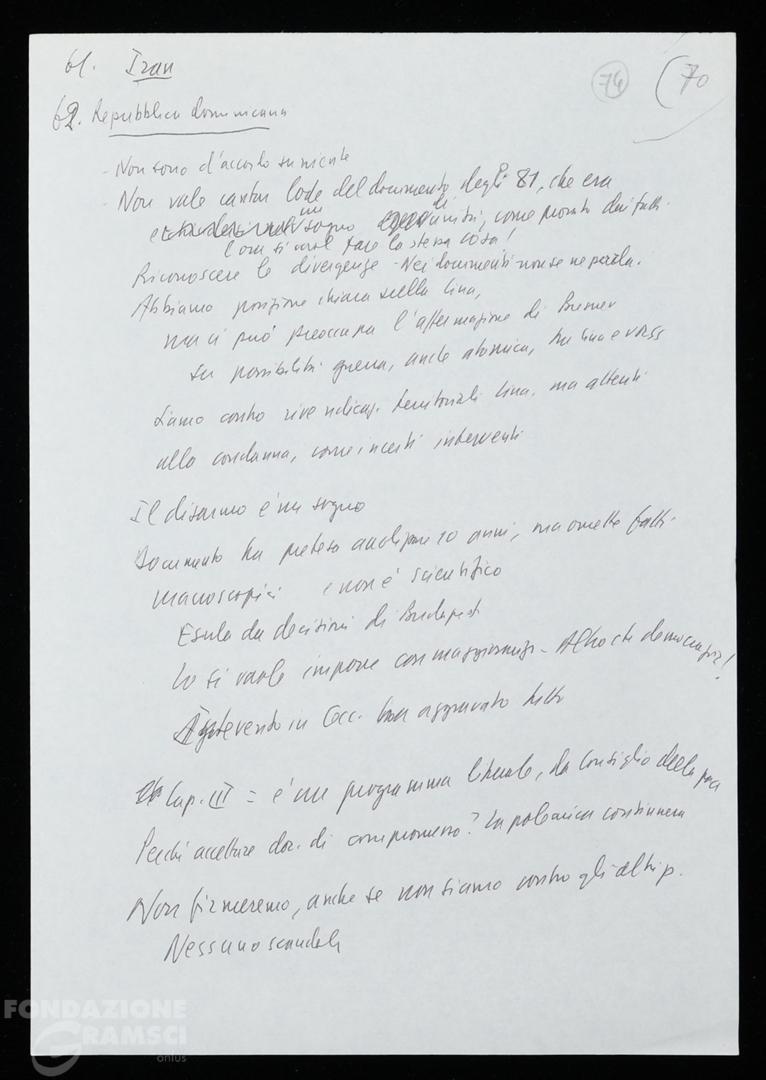 61. Iran
74
(70
62. Repubblica Dominicana
- Non sono d'accordo su niente
- Non vale cantar lode del documento degli 81, che era
un sogno di unità, come provato dai fatti.
Ora si vuol fare la stessa cosa!
Riconoscere le divergenze - Nei documenti non se ne parla.
Abbiamo posizione chiara sulla Cina,
ma ci può preoccupa l'affermazione di Bresnev
su possibilità guerra, anche atomica, tra Cina e URSS
Siamo contro rivendicaz. territoriali Cina, ma attenti
alla condanna, come in certi interventi
Il disarmo è un sogno
Documento ha preteso 10 anni, ma omette fatti
macroscopici e non è scientifico
Esula da decisioni di Budapest
Lo si vuole imporre con maggioranza - Altro che democrazia!
Intervento in Cec. ha aggravato tutto
Cap. III = è un programma liberale, da Consiglio della pace
Perché accettare doc. di compromesso? La polemica continuerà
Non firmeremo, anche se non siamo contro gli altri p.
Nessuno scandalo
FONDAZIONE
GRAMSCI
onlus